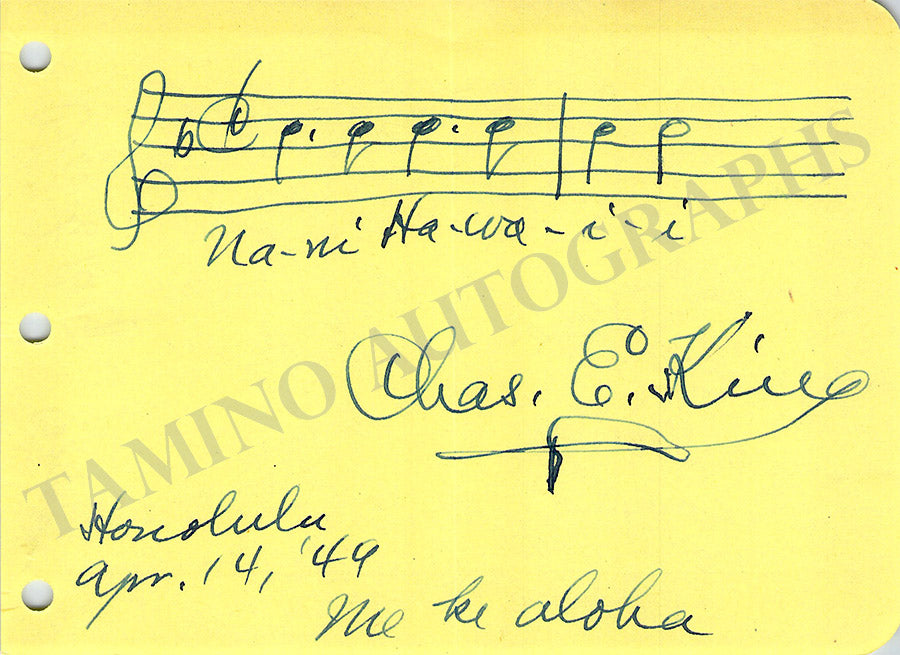 Na-ni Ha-wa-i-i
Chas. E. King
Honolulu
Apr. 14, '49
Me ke aloha
TAMINO AUTOGRAPHS